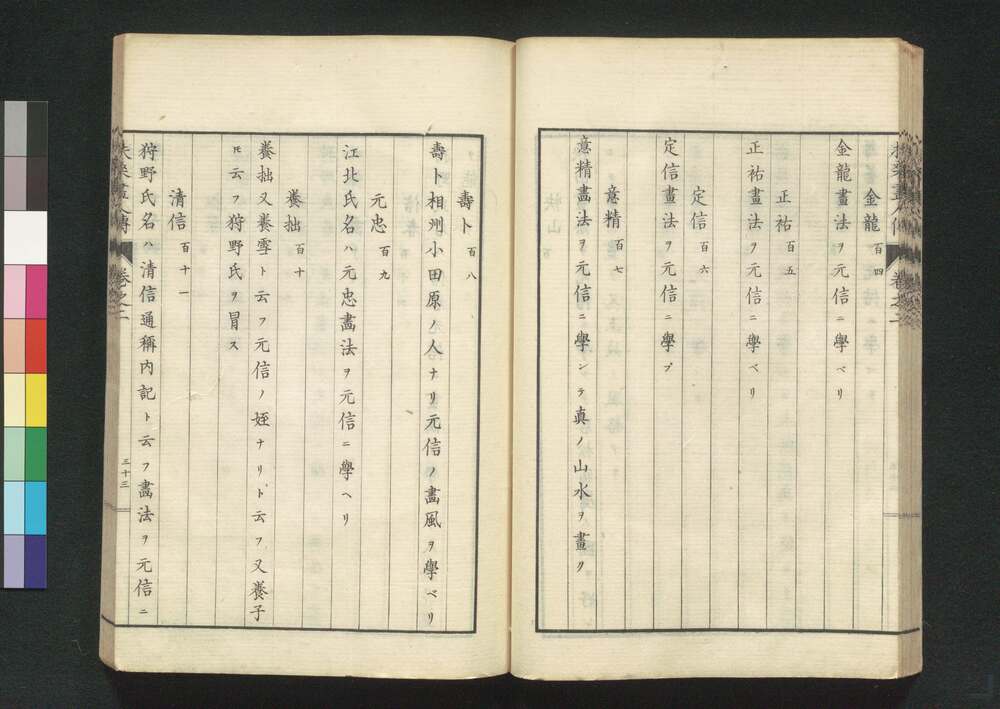 金龍 百四
金龍畫法ヲ元信ニ學ベリ
正祐 百五
正祐畫法ヲ元信ニ學ベリ
定信 百六
定信畫法ヲ元信ニ學ブ
意精 百七
意精畫法ヲ元信ニ學ンテ真ノ山水ヲ畫ク
壽卜 百八
壽卜相州小田原ノ人ナリ元信ノ畵風ヲ學ベリ
元忠 百九
江北氏名ハ元忠畵法ヲ元信ニ學ヘリ
養拙 百十
養拙又養雪ト云フ元信ノ姪ナリト云フ又養子
𪜈云フ狩野氏ヲ冒ス
清信 百十一
狩野氏名ハ清信通稱内記ト云フ畵法ヲ元信ニ
扶桑畫人傳 卷之二
三十三